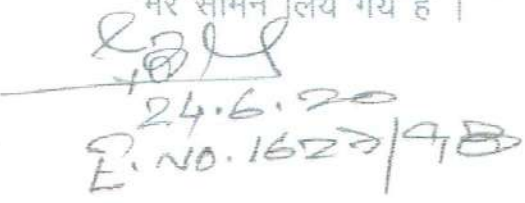 मेरे सामने लिये गये हैं ।
24.6.20
E. NO. 1622/98